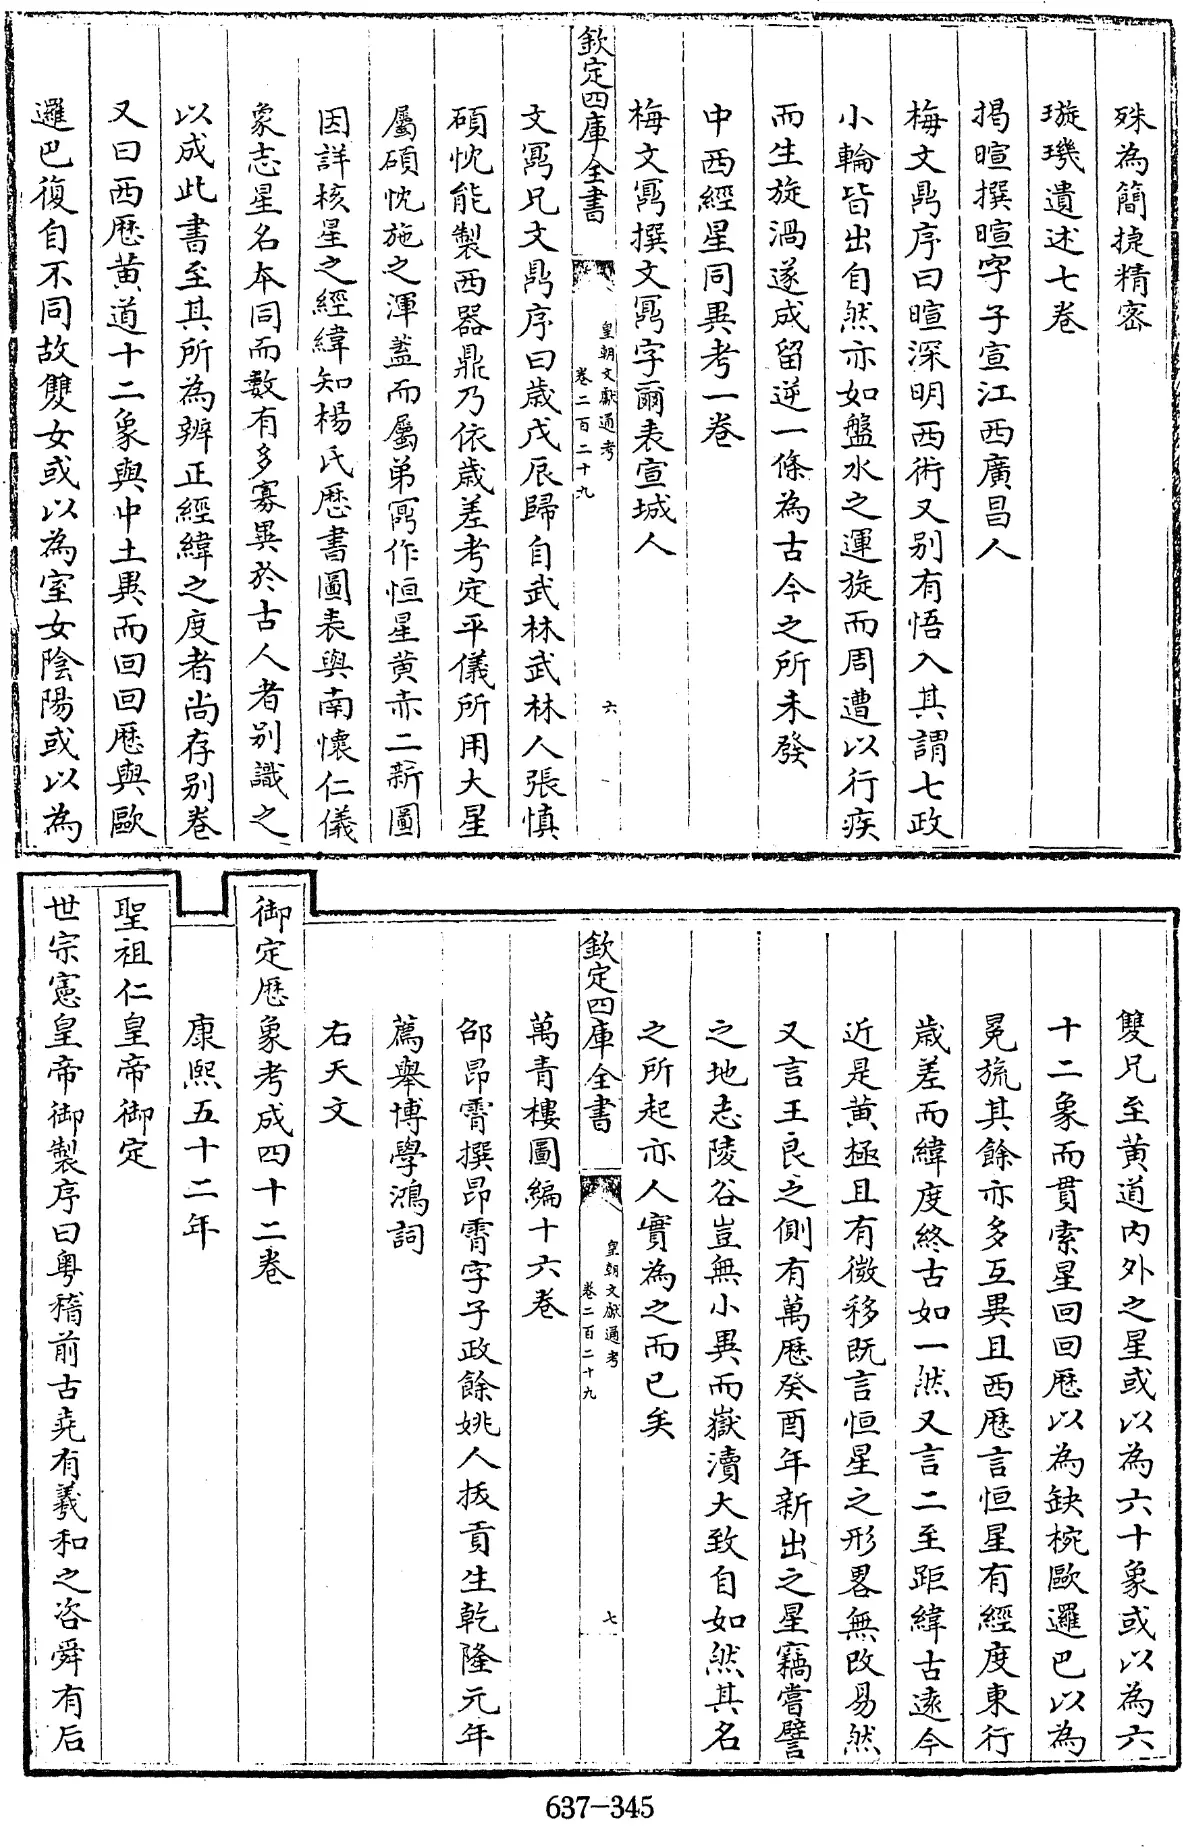 殊為簡捷精密
璇璣遺述七卷
揭暄撰暄字子宣江西廣昌人
梅文鼎序曰暄深明西術又别有悟入其謂七政
小輪皆出自然亦如盤水之運旋而周遭以行疾
而生旋渦遂成留逆一條為古今之所未發
中西經星同異考一卷
梅文鼏撰文鼏字爾表宣城人
欽定四庫全書
皇朝文獻通考
卷二百二十九
六
文鼏兄文鼎序曰歲戊辰歸自武林武林人張慎
碩忱能製西器鼎乃依歲差考定平儀所用大星
屬碩忱施之渾蓋而屬弟鼏作恒星黄赤二新圖
因詳核星之經緯知楊氏歴書圖表與南懐仁儀
象志星名本同而數有多寡異於古人者别識之
以成此書至其所為辨正經緯之度者尚存别卷
又曰西歴黄道十二象與中土異而回回歴與歐
邏巴復自不同故雙女或以為室女陰陽或以為
雙兄至黄道内外之星或以為六十象或以為六
十二象而貫索星回回歴以為缺椀歐邏巴以為
冕旒其餘亦多互異且西歴言恒星有經度東行
歲差而緯度終古如一然又言二至距緯古遠今
近是黄極且有微移既言恒星之形畧無改易然
又言王良之側有萬歴癸酉年新出之星竊嘗譬
之地志陵谷豈無小異而嶽瀆大致自如然其名
之所起亦人實為之而已矣
欽定四庫全書
皇朝文獻通考
卷二百二十九
七
萬青樓圖編十六卷
邵昂霄撰昂霄字子政餘姚人拔貢生乾隆元年
薦舉博學鴻詞
右天文
御定歴象考成四十二卷
康熙五十二年
聖祖仁皇帝御定
世宗憲皇帝御製序曰粤稽前古堯有羲和之咨舜有后
637-345